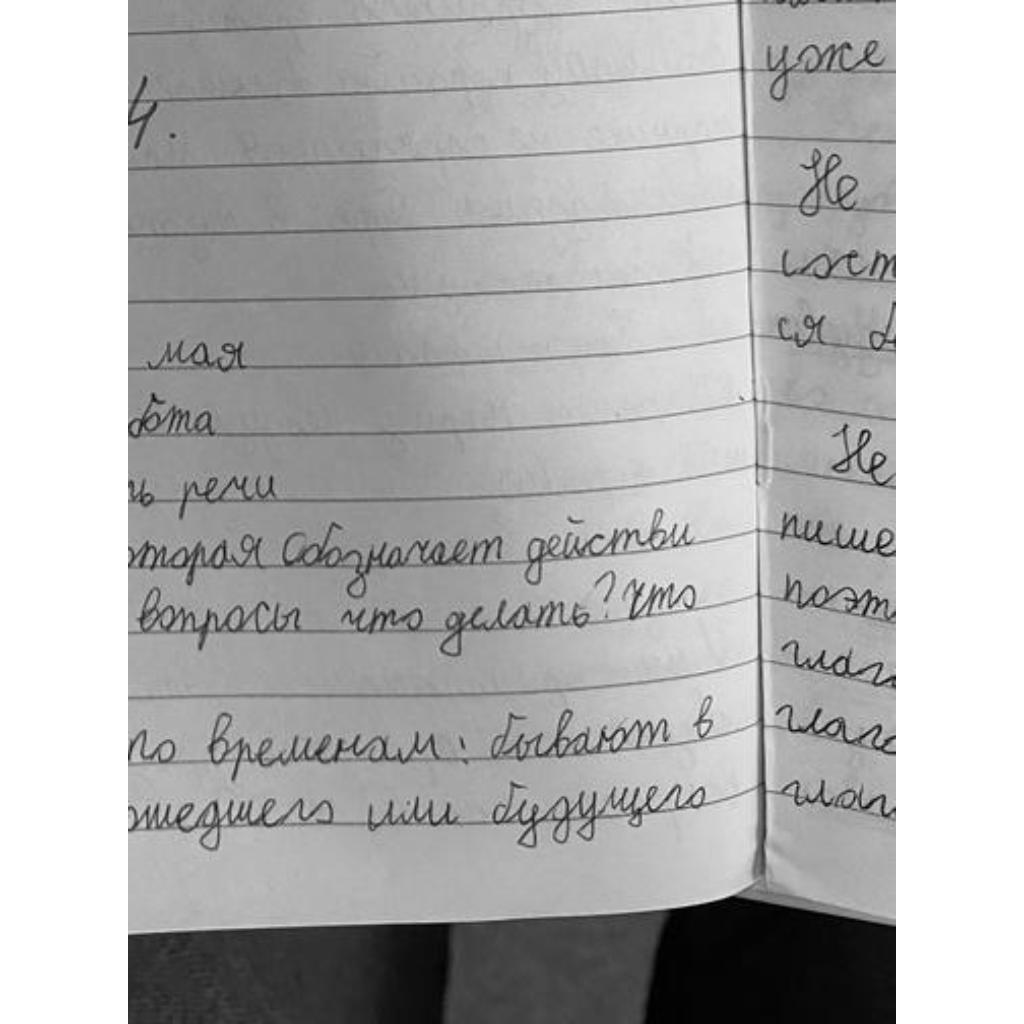 4.
мая
бота
ь речи
оторая обозначает действи
вопросы что делать? что
по временам: бывают в
ошедшего или будущего
уже
Не
ся
Не
пише
поэт
глаг
глаго
глаг